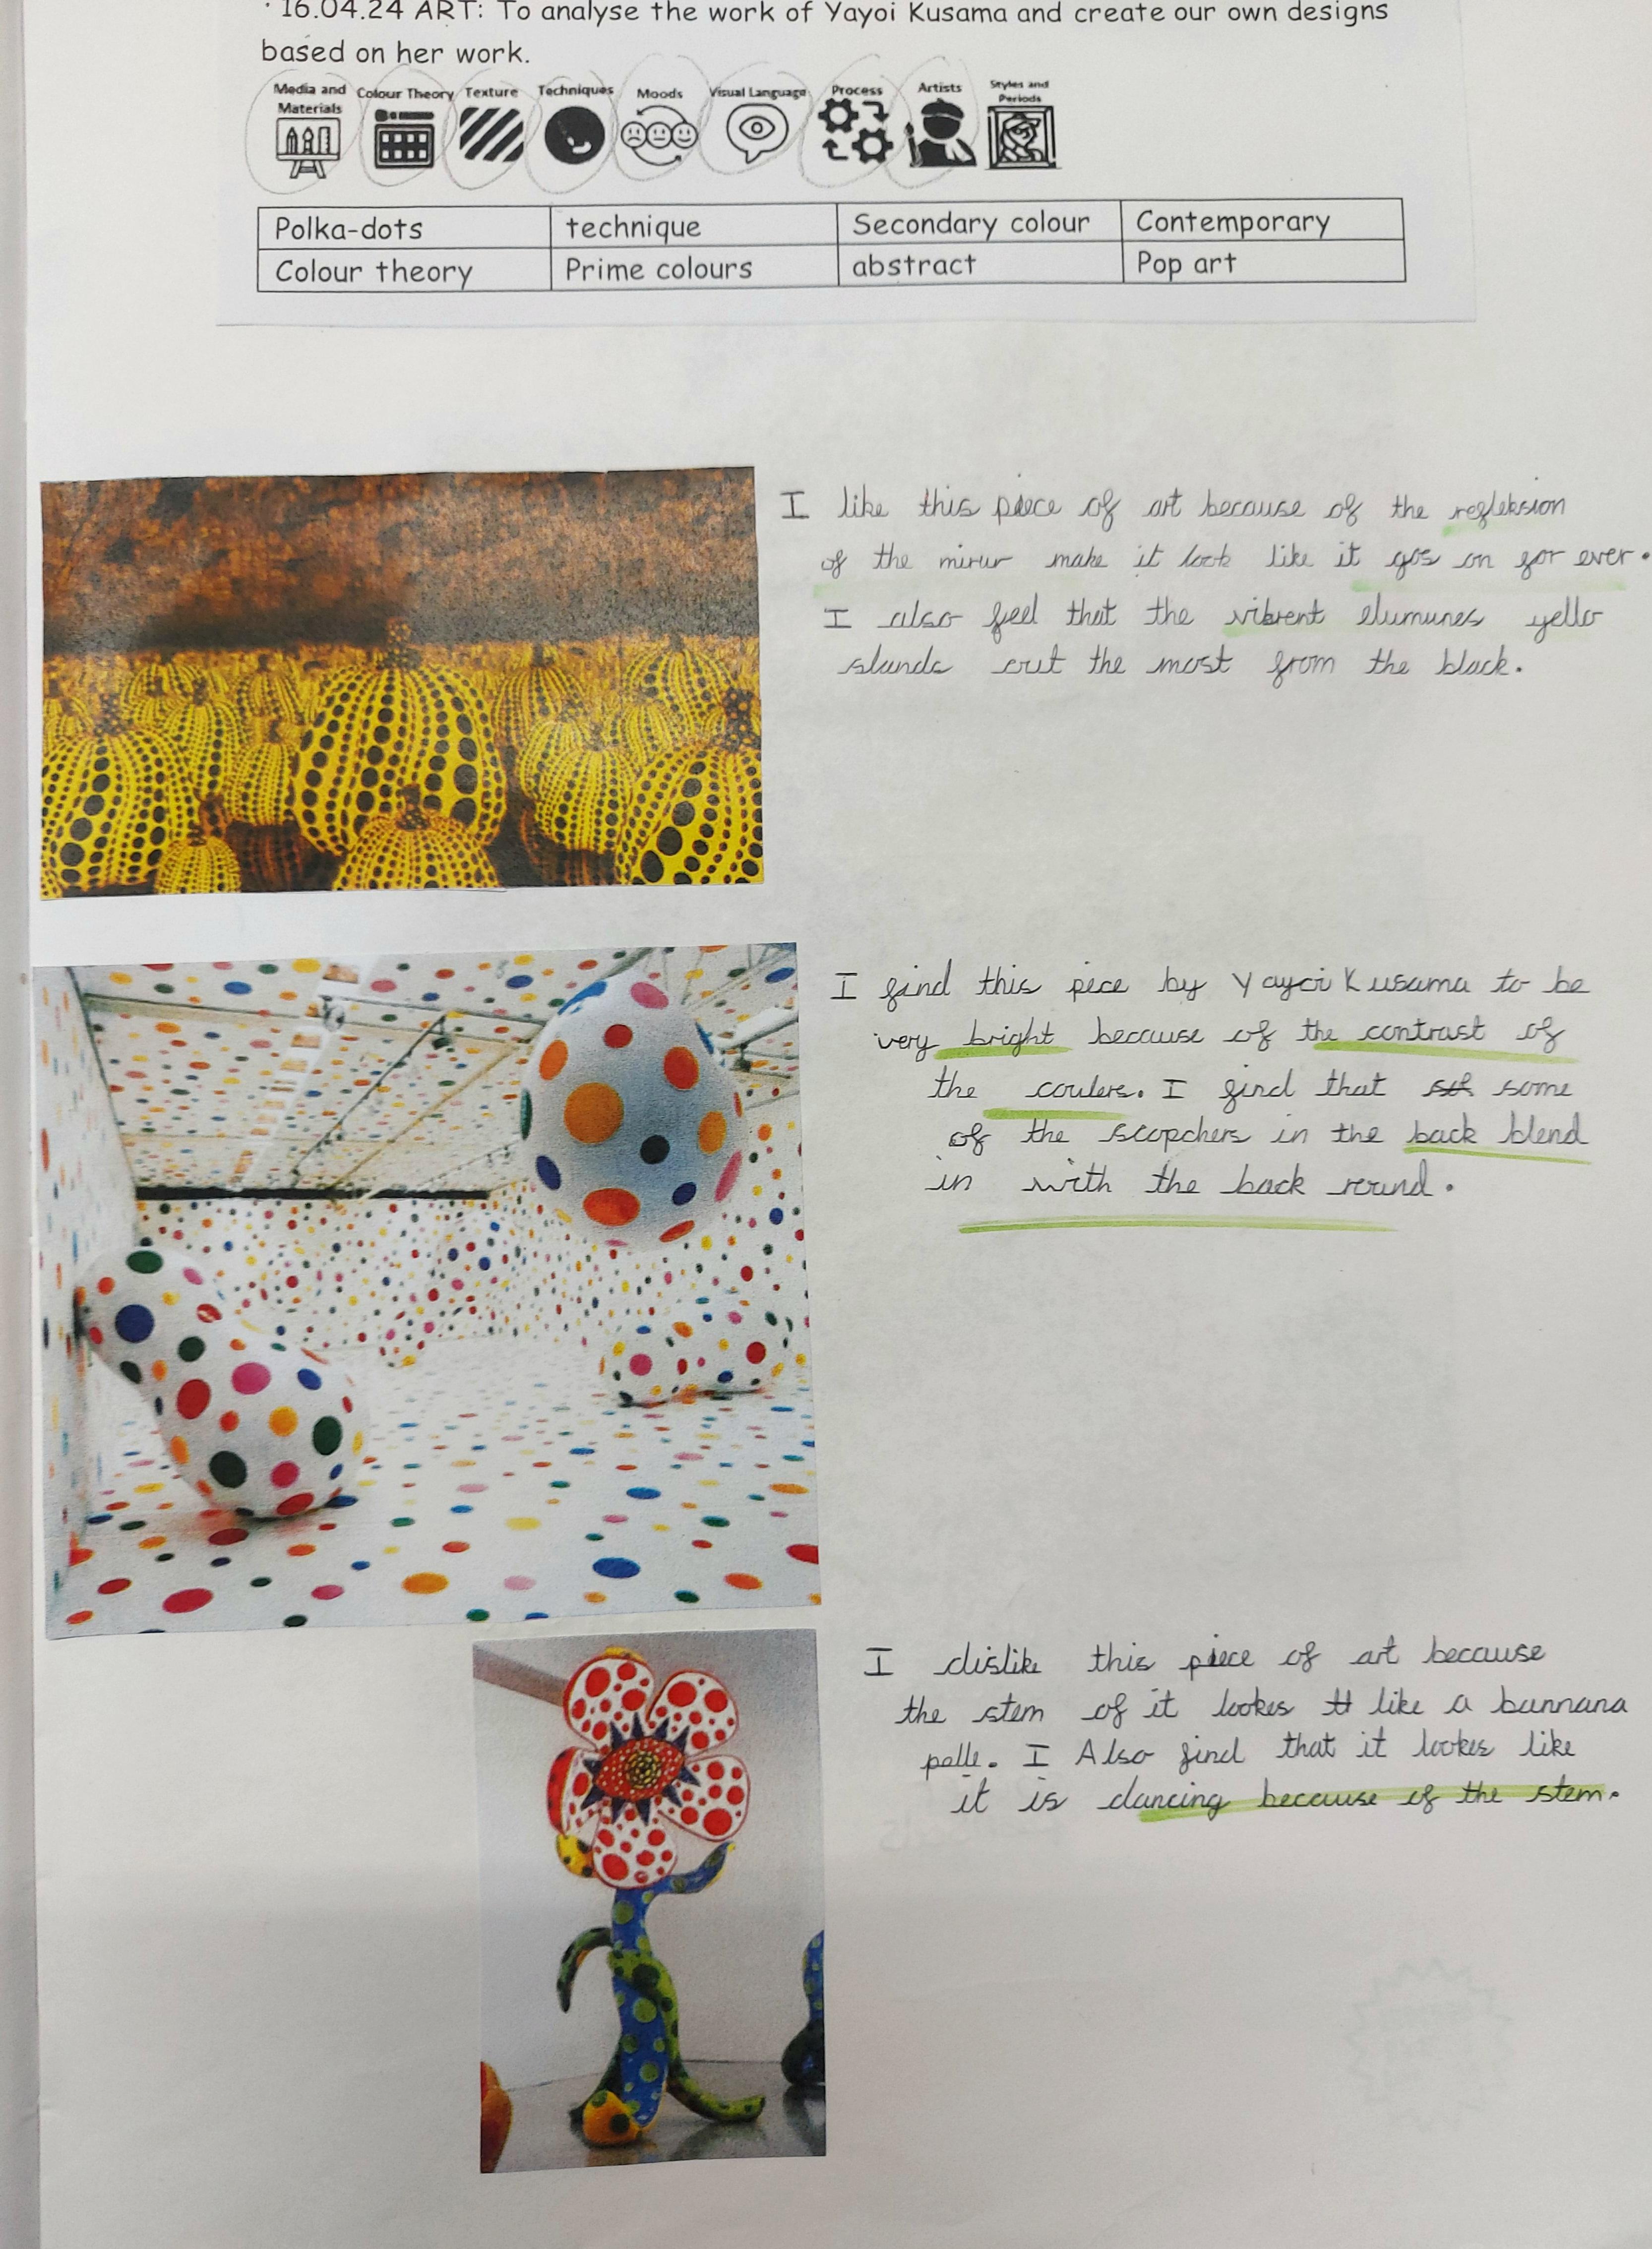 16.04.24 ART: To analyse the work of Yayoi Kusama and create our own designs
based on her work.
Media and Materials Colour Theory Texture Techniques Moods Visual Language Process Artists Styles and Periods
Polka-dots technique Secondary colour Contemporary
Colour theory Prime colours abstract Pop art
I like this piece of art because of the refleksion
of the mirur make it look like it gos on for ever.
I also feel that the vibrent elumunes yello
stands out the most from the black.
I find this pece by Yayoi Kusama to be
very bright because of the contrast of
the coulers. I find that some
of the scopchers in the back blend
in with the back round.
I dislike this piece of art because
the stem of it lookes like a bannana
palle. I Also find that it lookes like
it is dancing because of the stem.